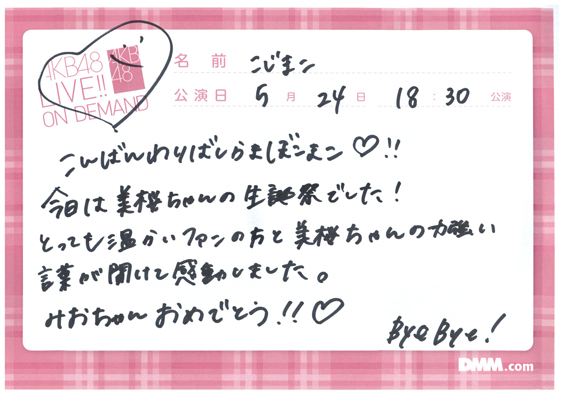 AKB48
LIVE!!
ON DEMAND
AKB
48
名前 こじまこ
公演日 5月 24日 18:30 公演
こんばんわりばしらまぼこまこ♡!!
今日は美桜ちゃんの生誕祭でした!
とっても温かいファンの方と美桜ちゃんの力強い
言葉が聞けて感動しました。
みおちゃんおめでとう!!♡
ByeBye!
DMM.com